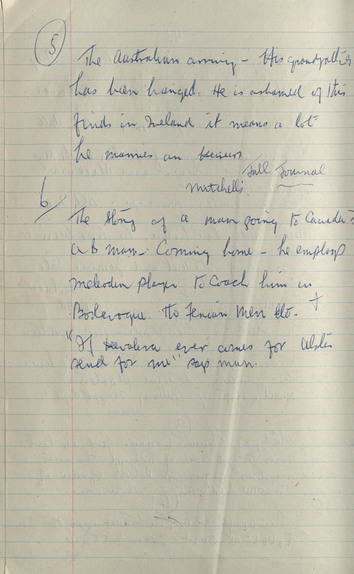 5
The Australian arriving - His grandfather
has been hanged. He is ashamed of this
finds in Ireland it means a lot
he marries an
Mitchell's Jail Journal
6/
The story of a man going to Canada
a b man. Coming home - he employs
melodeon player to coach him in
The Fenian Men etc. +
"If Devalera ever comes for Ulster
send for me" says man.